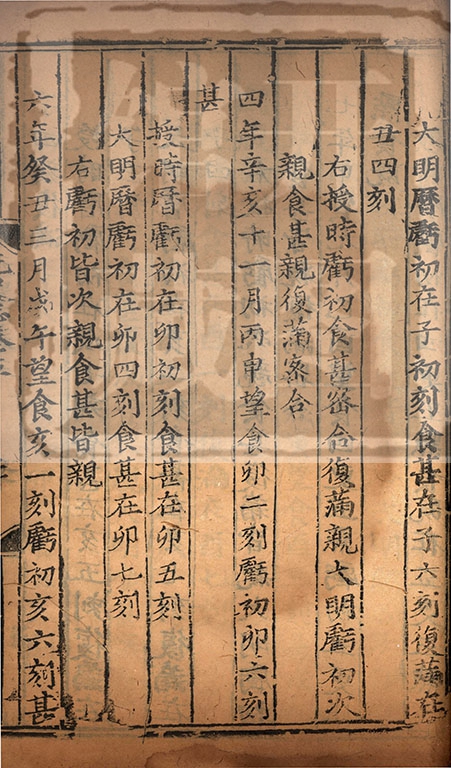 大明曆虧初在子初刻食甚在子六刻復滿在
丑四刻
右授時虧初食甚密合復滿親大明虧初次
親食甚親復滿密合
四年辛亥十一月丙申望食卯二刻虧初卯六刻
甚
授時曆虧初在卯初刻食甚在卯五刻
大明曆虧初在卯四刻食甚在卯七刻
右虧初皆次親食甚皆親
六年癸丑三月戊午望食亥一刻虧初亥六刻甚